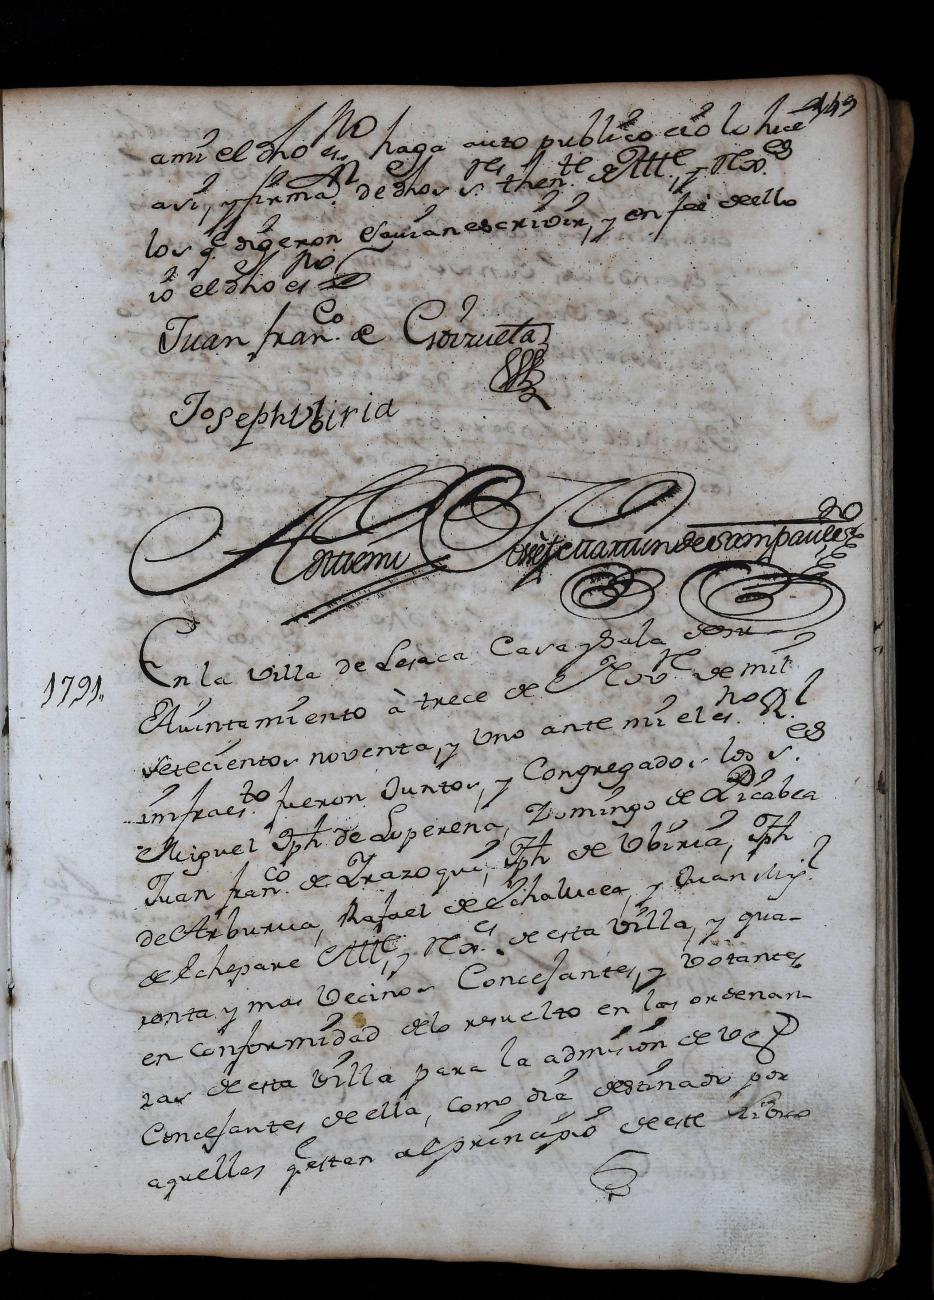 149
a mi el dho es.no haga auto publico e io lo hice
asi, y firmaN. de dhos s.res then.te Alc.e, y Rex.es
los q.e digeron Savian escrivir, y en feé de ello
ió el dho es.no
Juan fran.co de Goizueta
Joseph Ubiria
Ante mi Joseph Martin de Sampaul es.no
1791.
En la Villa de Lesaca Casa y Sala de su
Aiuntamiento à trece de Nov.re de mil
setecientos noventa, y Uno ante mi el es.no R.l
infraes.to fueron Juntos, y Congregados los s.es
Miguel Jph de Loperena, Domingo de Picabea
Juan fran.co de Irazoqui, Jph de Ubiria, Jph
de Arburua, Rafael de Echalucea, y Juan Mig.l
de Echepare Alc.e, y Rex.es de esta Villa, y qua-
renta y mas Vecinos Concejantes, y Votantes
en conformidad delo resuelto en las ordenan-
zas de esta Villa para la admision de Ve.s
Concejantes de ella, como dia destinado por
aquellas q.e estan al principio de este Libro